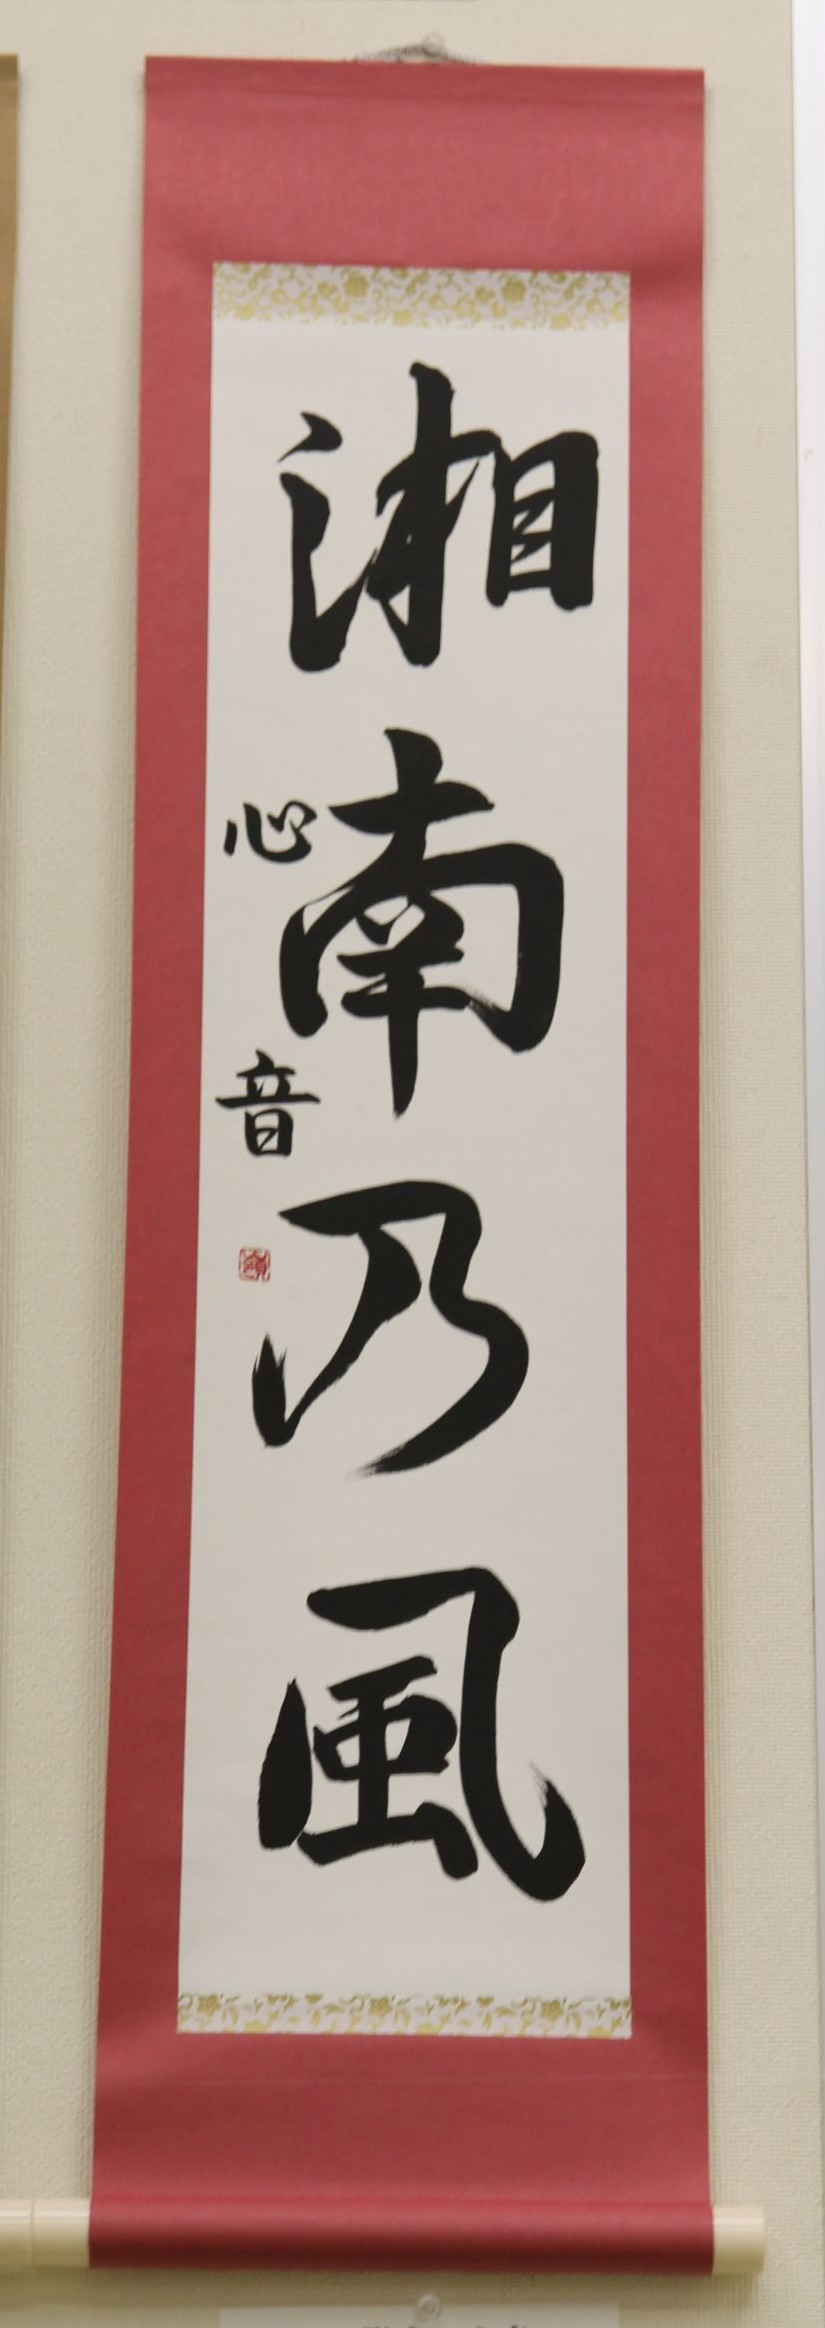 湘南乃風
心音